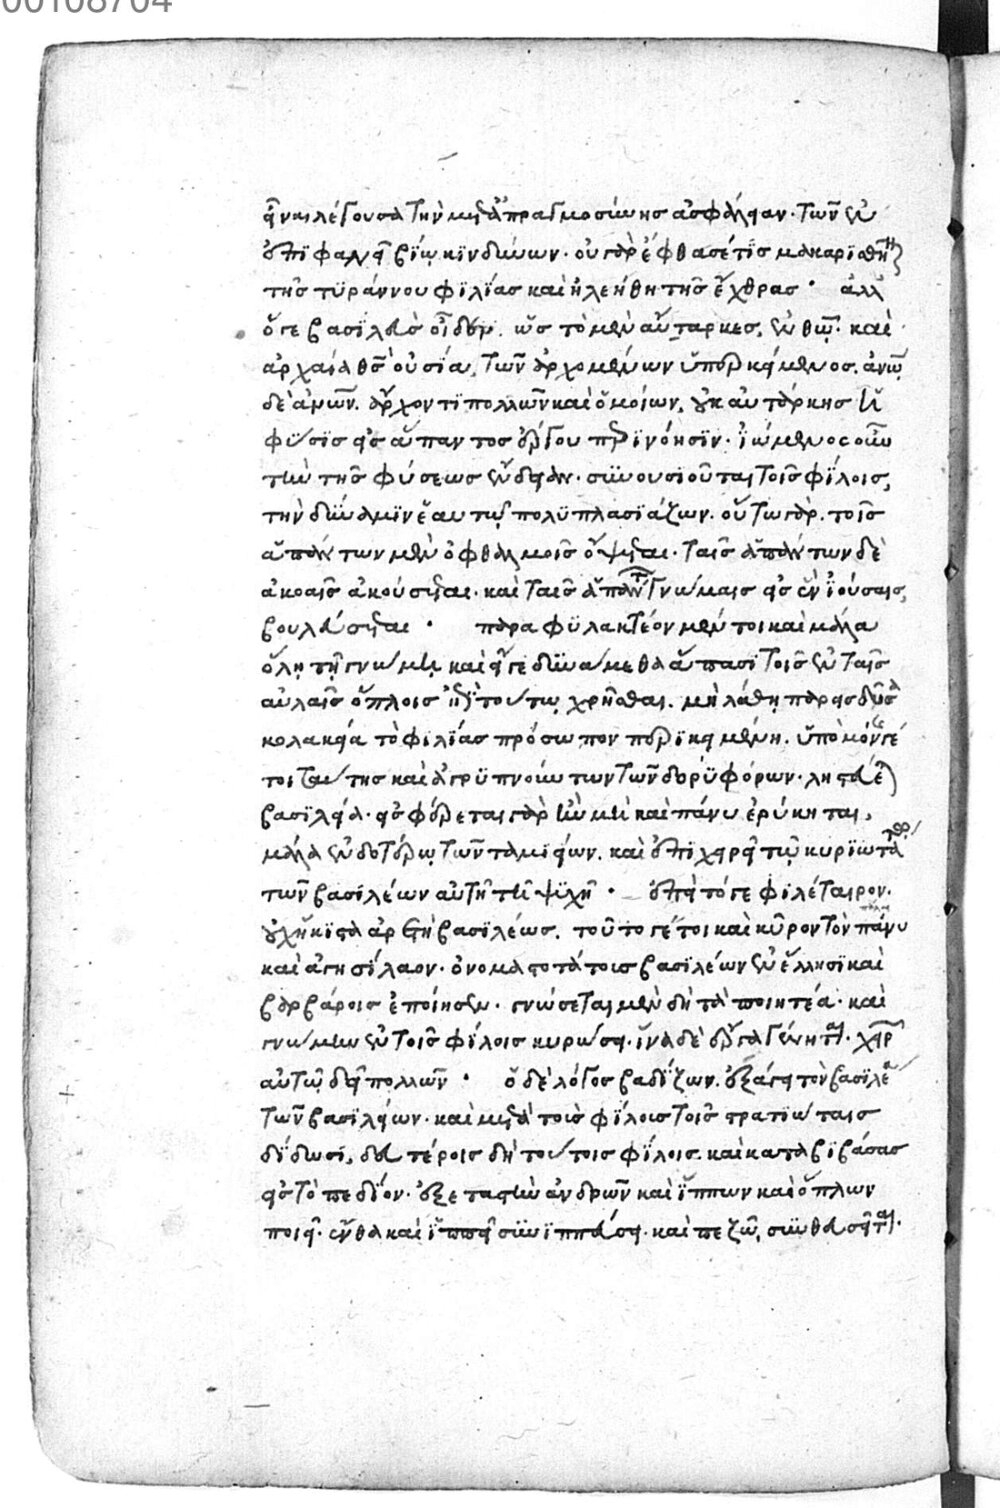 00108704
εἶναι λέγουσα τὴν μετὰ ἀπραγμοσύνης ἀσφάλειαν. τῶν ἐν
ἐπιφανεῖ βίῳ κινδύνων. οὐ γὰρ ἔφθασέ τις μακαρισθῆναι
τῆς τυράννου φιλίας καὶ ἠλεήθη τῆς ἔχθρας. ἀλλ'
ὅ γε βασιλεὺς οἶδεν. ὡς τὸ μὲν αὔταρκες, ἐν θεῷ. καὶ
ἀρχαία θεὸς οὐσία, τῶν ἀρχομένων ὑπερκείμενος. ἀνῳ
δὲ ἀνῶν. ἄρχοντι πολλῶν καὶ ὁμοίων, οὐκ αὐτάρκης ἡ
φύσις εἰς ἅπαντος ἔργου περινόησιν. ἰώμενος οὖν
τὴν τῆς φύσεως ἔνδειαν. συνουσιοῦται τοῖς φίλοις,
τὴν δύναμιν ἑαυτῷ πολυπλασιάζων. οὕτω γὰρ. τοῖς
ἁπάντων μὲν ὀφθαλμοῖς ὄψεται. ταῖς ἁπάντων δὲ
ἀκοαῖς ἀκούσεται. καὶ ταῖς ἁπάντων γνώμαις εἰς ἓν ἰούσαις,
βουλεύσεται. παραφυλακτέον μέντοι καὶ μάλα
ὅλῃ τῇ γνώμῃ καὶ εἴ γε δυναίμεθα ἅπασι τοῖς ἐν ταῖς
αὐλαῖς ὅπλοις ἐπὶ τούτῳ χρῆσθαι. μὴ λάθῃ παρεισδῦσα
κολακεία τὸ φιλίας πρόσωπον περικειμένη. ὑπὸ μόνης γέ
τοι ταύτης καὶ ἀγρυπνούντων τῶν δορυφόρων. ληστεύεται
βασιλεία. εἰσφθείρεται γὰρ ἢν μὴ καὶ πάνυ ἐρύκηται,
μάλα ἐνδοτέρω τῶν ταμιείων. καὶ ἐπιχειρεῖ τῷ κυριωτάτῳ
τῶν βασιλέων αὐτῇ τῇ ψυχῇ. ἐπεὶ τό γε φιλέταιρον.
οὐχ ἥκιστα ἀρετὴ βασιλέως. τοῦτο γέ τοι καὶ κῦρον τὸν πάνυ
καὶ ἀγησίλαον. ὀνομαστοτάτοις βασιλέων ἐν ἕλλησι καὶ
βαρβάροις ἐποίησεν. γνώσεται μὲν δὴ τὰ ποιητέα. καὶ
γνώμην ἐν τοῖς φίλοις κυρώσει. ἵνα δὲ ἔργα γένηται. χειρῶν
αὐτῷ δεῖ πολλῶν. ὁ δὲ λόγος βαδίζων. ἐξάγει τὸν βασιλέα
τῶν βασιλείων. καὶ μετὰ τοὺς φίλους τοῖς στρατιώταις
δίδωσι, δευτέροις δὴ τούτοις φίλοις. καὶ καταβιβάσας
εἰς τὸ πεδίον. ἐξεταστὴν ἀνδρῶν καὶ ἵππων καὶ ὅπλων
ποιεῖ. ἔνθα καὶ ἱππεῖ συνιππεύσει. καὶ πεζῷ, συνθεύσεται.